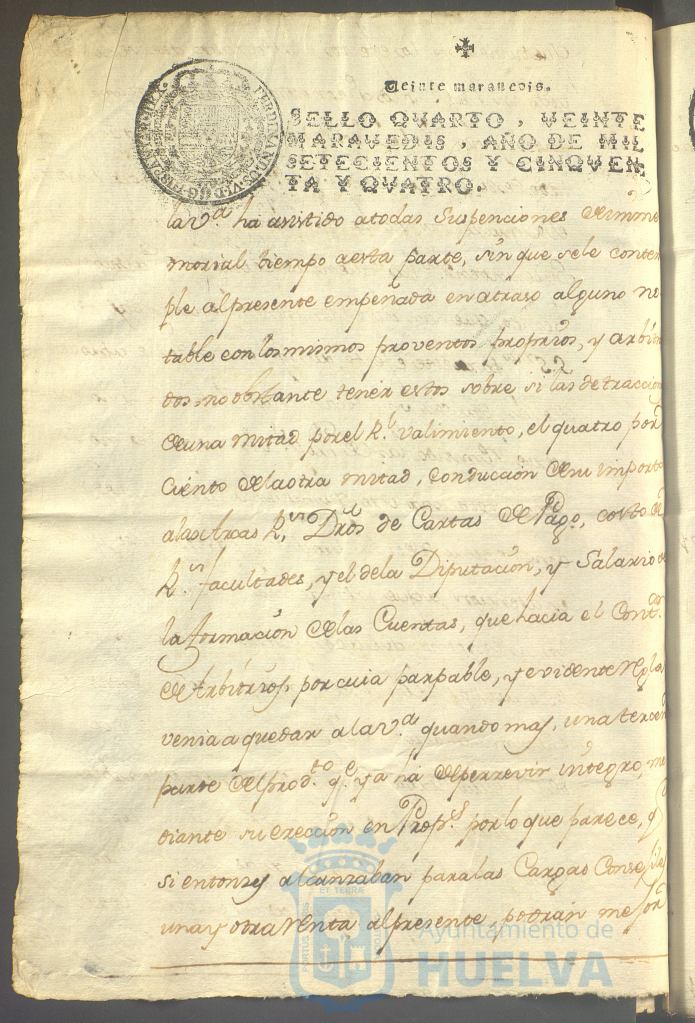 Veinte maravedis.
SELLO QVARTO, VEINTE
MARAVEDIS, AÑO DE MIL
SETECIENTOS Y CINQVEN-
TA Y QVATRO.
la V.ª ha asistido atodas suspenciones de imme
morial tiempo aesta parte, sin que sele contem
ple alpresente empeñada en atraso alguno no
table con los mismos proventos proprios, y arbitri
dos, no obstante tener estos sobre si las detraccion
de una mitad por el R.l valimiento, el quatro por
Ciento de la otra mitad, conducción de su importe
alas Arcas R.s Dros de Cartas de Pago, costo de
R.s facultades, y el dela Diputación, y Salario de
la formación de las Cuentas, que hacia el Cont.or
de Arbitrios, por cuia parpable, y evidente regla
venia a quedar a la V.ª quando mas, una tercera
parte del prod.to q.e ya há de percevir integro, me
diante su erección en Prop.s por lo que parece, q
si entonzes alcanzaban para las Cargas Conzejiles
una y otra renta, alpresente, podran mejor
Ayuntamiento de
HUELVA